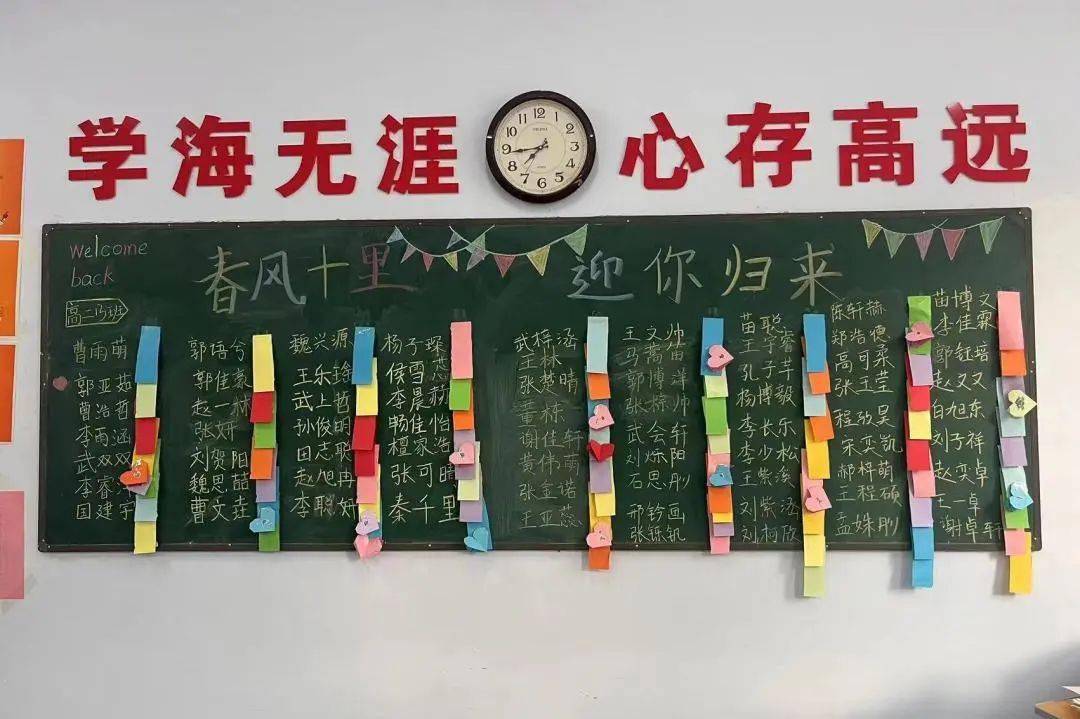 学海无涯
心存高远
12
1
2
3
4
5
6
7
8
9
10
11
Welcome
back
春风十里
迎你归来
曹雨萌
郭亚茹
曹浩哲
李雨涵
武双双
李睿
国建宇
郭培兮
郭佳豪
赵一林
张妍
刘贺阳
魏思喆
曹文垚
魏兴源
王乐
武上哲
孙俊明
田志聪
赵旭冉
李聪
杨子琛
侯雪蕊
李晨赫
畅佳怡
檀家浩
张可晴
秦千里
武梓涵
王林
张楚晴
董栋
谢佳轩
黄伟萌
张金诺
王亚蕊
王文帅
马嵩苗
郭博洋
张棕帅
武会轩
刘烁阳
石思彤
邢铃画
张铄钒
苗聪睿
王宇
孔子芊
杨博毅
李长乐
李少松
王紫溪
刘紫涵
刘柯欣
陈轩赫
郑浩德
高可柔
张玉莹
程劲昊
宋奕凯
郝梓萌
王程硕
孟姝彤
苗博文
李佳霖
郭钰培
赵又又
白旭东
刘子祥
赵奕卓
王一卓
谢卓轩